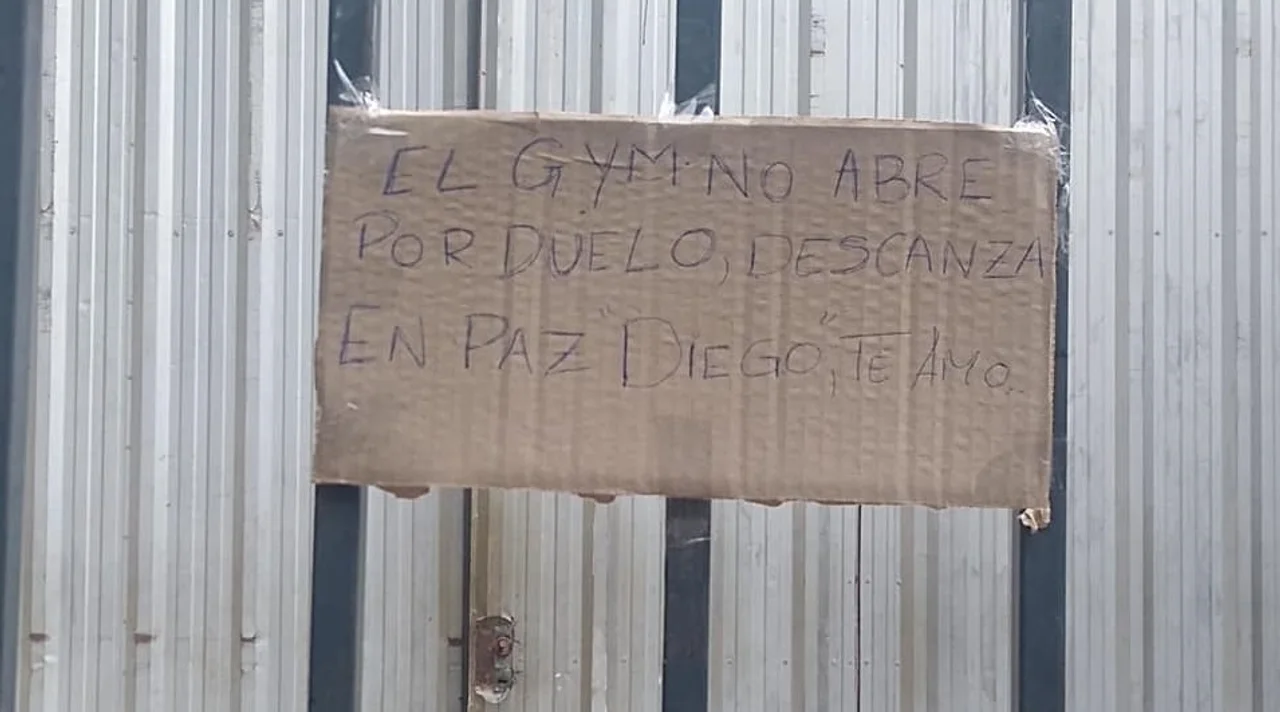 EL GYM NO ABRE
POR DUELO, DESCANZA
EN PAZ "DIEGO", TE AMO..